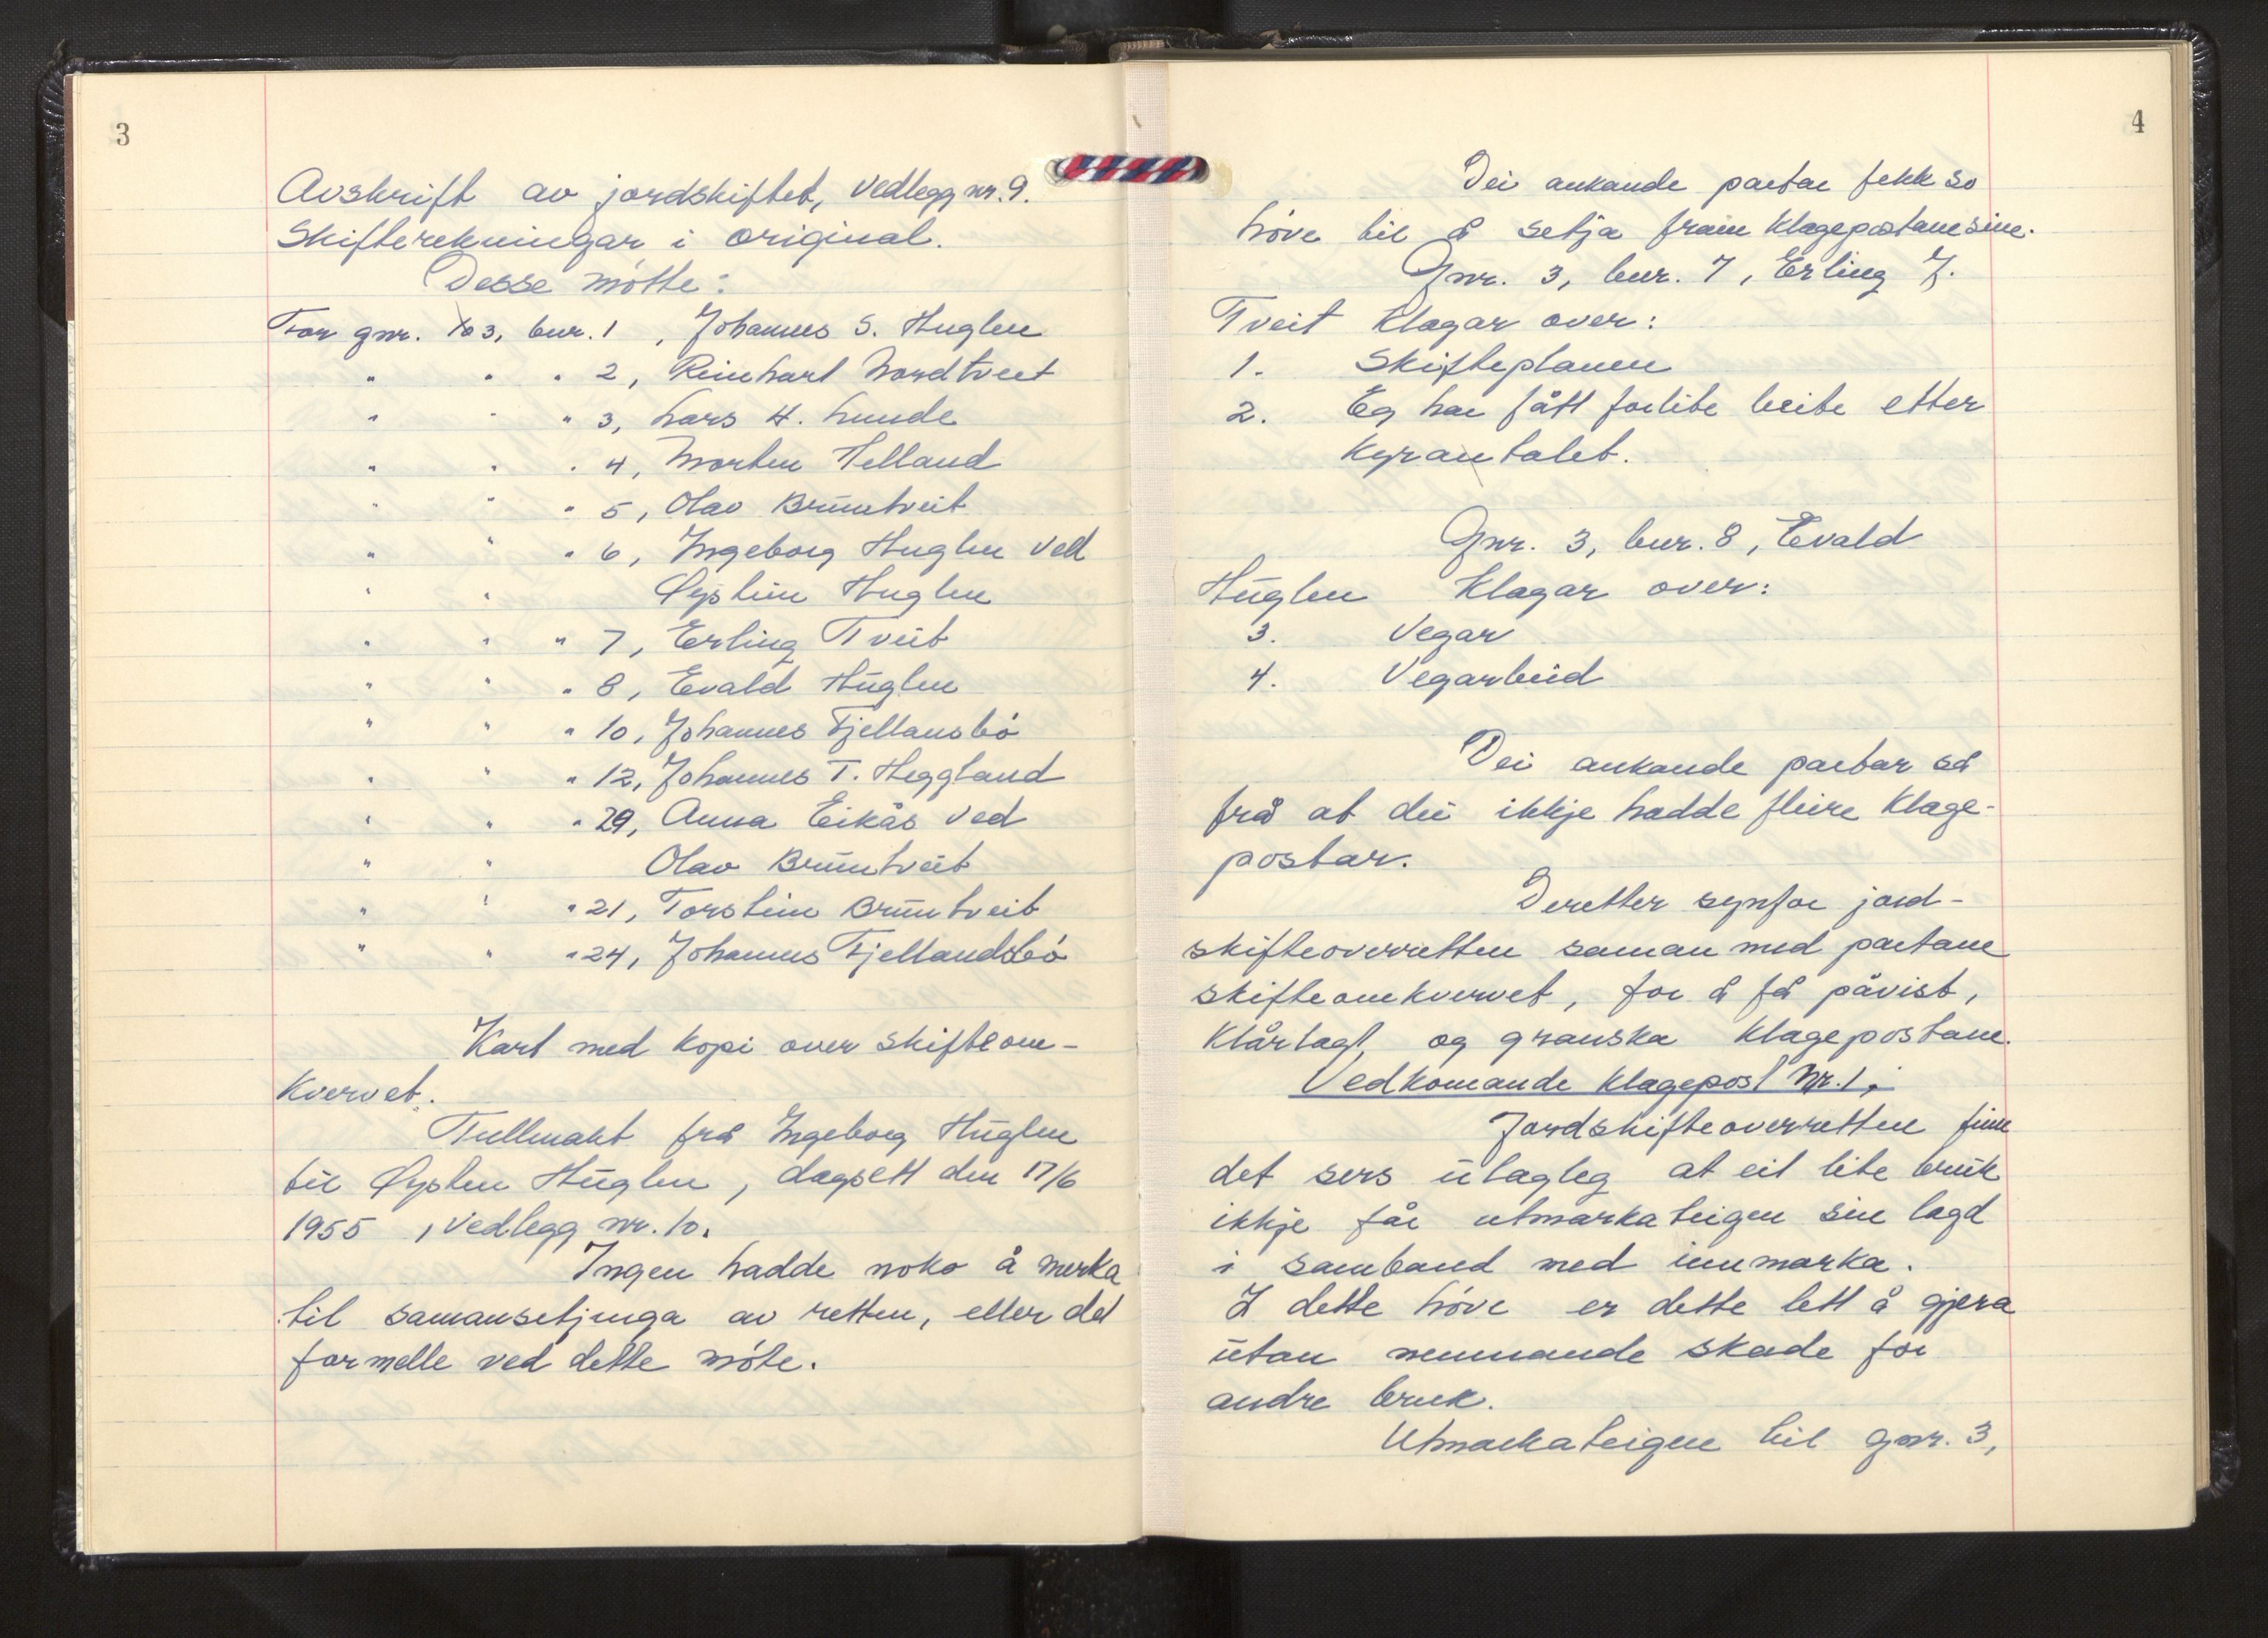 3
Avskrift av jordskiftet, vedlegg nr. 9.
Skifterekningar i original.
Desse møtte:
For gnr. 3, bnr. 1, Johannes S. Huglen
" " " 2, Reinhart Nordtveit
" " " 3, Lars H. Lunde
" " " 4, Morten Helland
" " " 5, Olav Bruntveit
" " " 6, Ingeborg Huglen ved
" " Øystein Huglen
" " " 7, Erling Tveit
" " " 8, Evald Huglen
" " " 10, Johannes Fjellansbø
" " " 12, Johannes T. Heggland
" " " 29, Anna Eikås ved
" " Olav Bruntveit
" " " 21, Torstein Bruntveit
" " " 24, Johannes Fjellandsbø
Kart med kopi over skifteom-
kvervet.
Fullmakt frå Ingeborg Huglen
til Øysten Huglen, dagsett den 17/6
1955, vedlegg nr. 10.
Ingen hadde noko å merka
til samansetjinga av retten, eller det
formelle ved dette møte.
4
Dei ankande partar fekk so
høve til å setja fram klagepostane sine.
Gnr. 3, bnr. 7, Erling J.
Tveit klagar over:
1. Skifteplanen
2. Eg har fått forlite beite etter
kyrantalet.
Gnr. 3, bnr. 8, Evald
Huglen klagar over:
3. Vegar
4. Vegarbeid
Dei ankande partar sa
frå at dei ikkje hadde fleire klage-
postar.
Deretter synfor jord-
skifteoverretten saman med partane
skifteomkvervet, for å få påvist,
klårlagt, og granska klagepostane.
Vedkomande klagepost Nr. 1,
Jordskifteoverretten finn
det sers ulagleg at eit lite bruk
ikkje får utmarkateigen sin lagd
i samband med innmarka.
I dette høve er dette lett å gjera
utan nemnande skade for
andre bruk.
Utmarkateigen til gnr. 3,